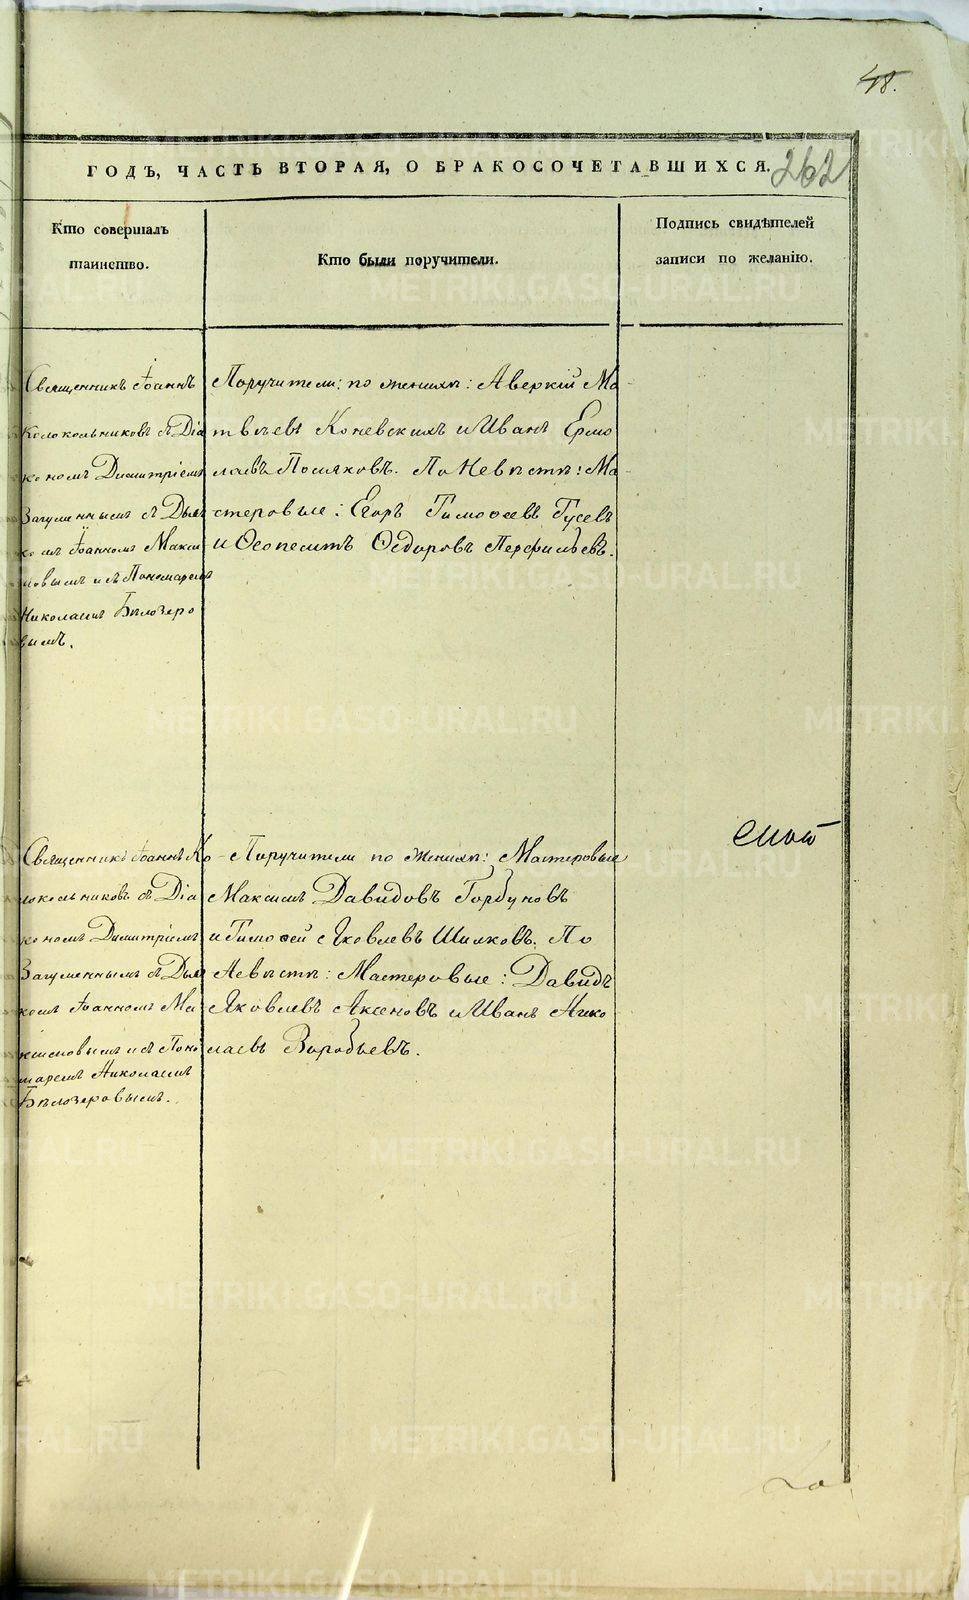 48.
ГОДЪ, ЧАСТЬ ВТОРАЯ, О БРАКОСОЧЕТАВШИХСЯ.
262
Кто совершалъ
таинство.
Кто были поручители.
Подпись свидѣтелей
записи по желанію.
Священникъ Іоаннъ
Колокольниковъ съ Діа
кономъ Димитріемъ
Загуменнымъ съ Дьяч
комъ Іоанномъ Макси
мовымъ и съ Пономаремъ
Николаемъ Бѣлозеро
вымъ.
Поручители: по женихѣ: Аверкій Ма
твѣевъ Коневскихъ и Иванъ Ермо
лаевъ Поляковъ. По Невѣстѣ: Ма
стеровые: Егоръ Тимофеевъ Гусевъ
и Ѳеопемптъ Ѳедоровъ Перфильевъ.
Священникъ Іоаннъ Ко
локольниковъ съ Діа
кономъ Димитріемъ
Загуменнымъ съ Дьяч
комъ Іоанномъ Ма
ксимовымъ и съ Поно
маремъ Николаемъ
Бѣлозеровымъ.
Поручители по женихѣ: Мастеровые
Максимъ Давидовъ Горбуновъ
и Тимофей Яковлевъ Шиляковъ. По
Невѣстѣ: Мастеровые: Давидъ
Яковлевъ Аксеновъ и Иванъ Нико
лаевъ Воробьевъ.
METRIKI.GASO-URAL.RU